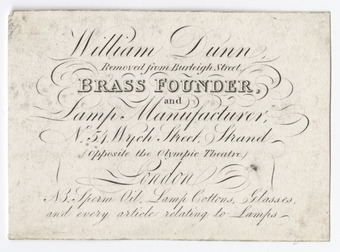 William Dunn,
Removed from Burleigh Street,
BRASS FOUNDER,
and
Lamp Manufacturer,
No. 54 Wych Street, Strand
(Opposite the Olympic Theatre)
London
NB. Sperm Oil, Lamp Cottons, Glasses,
and every article relating to Lamps